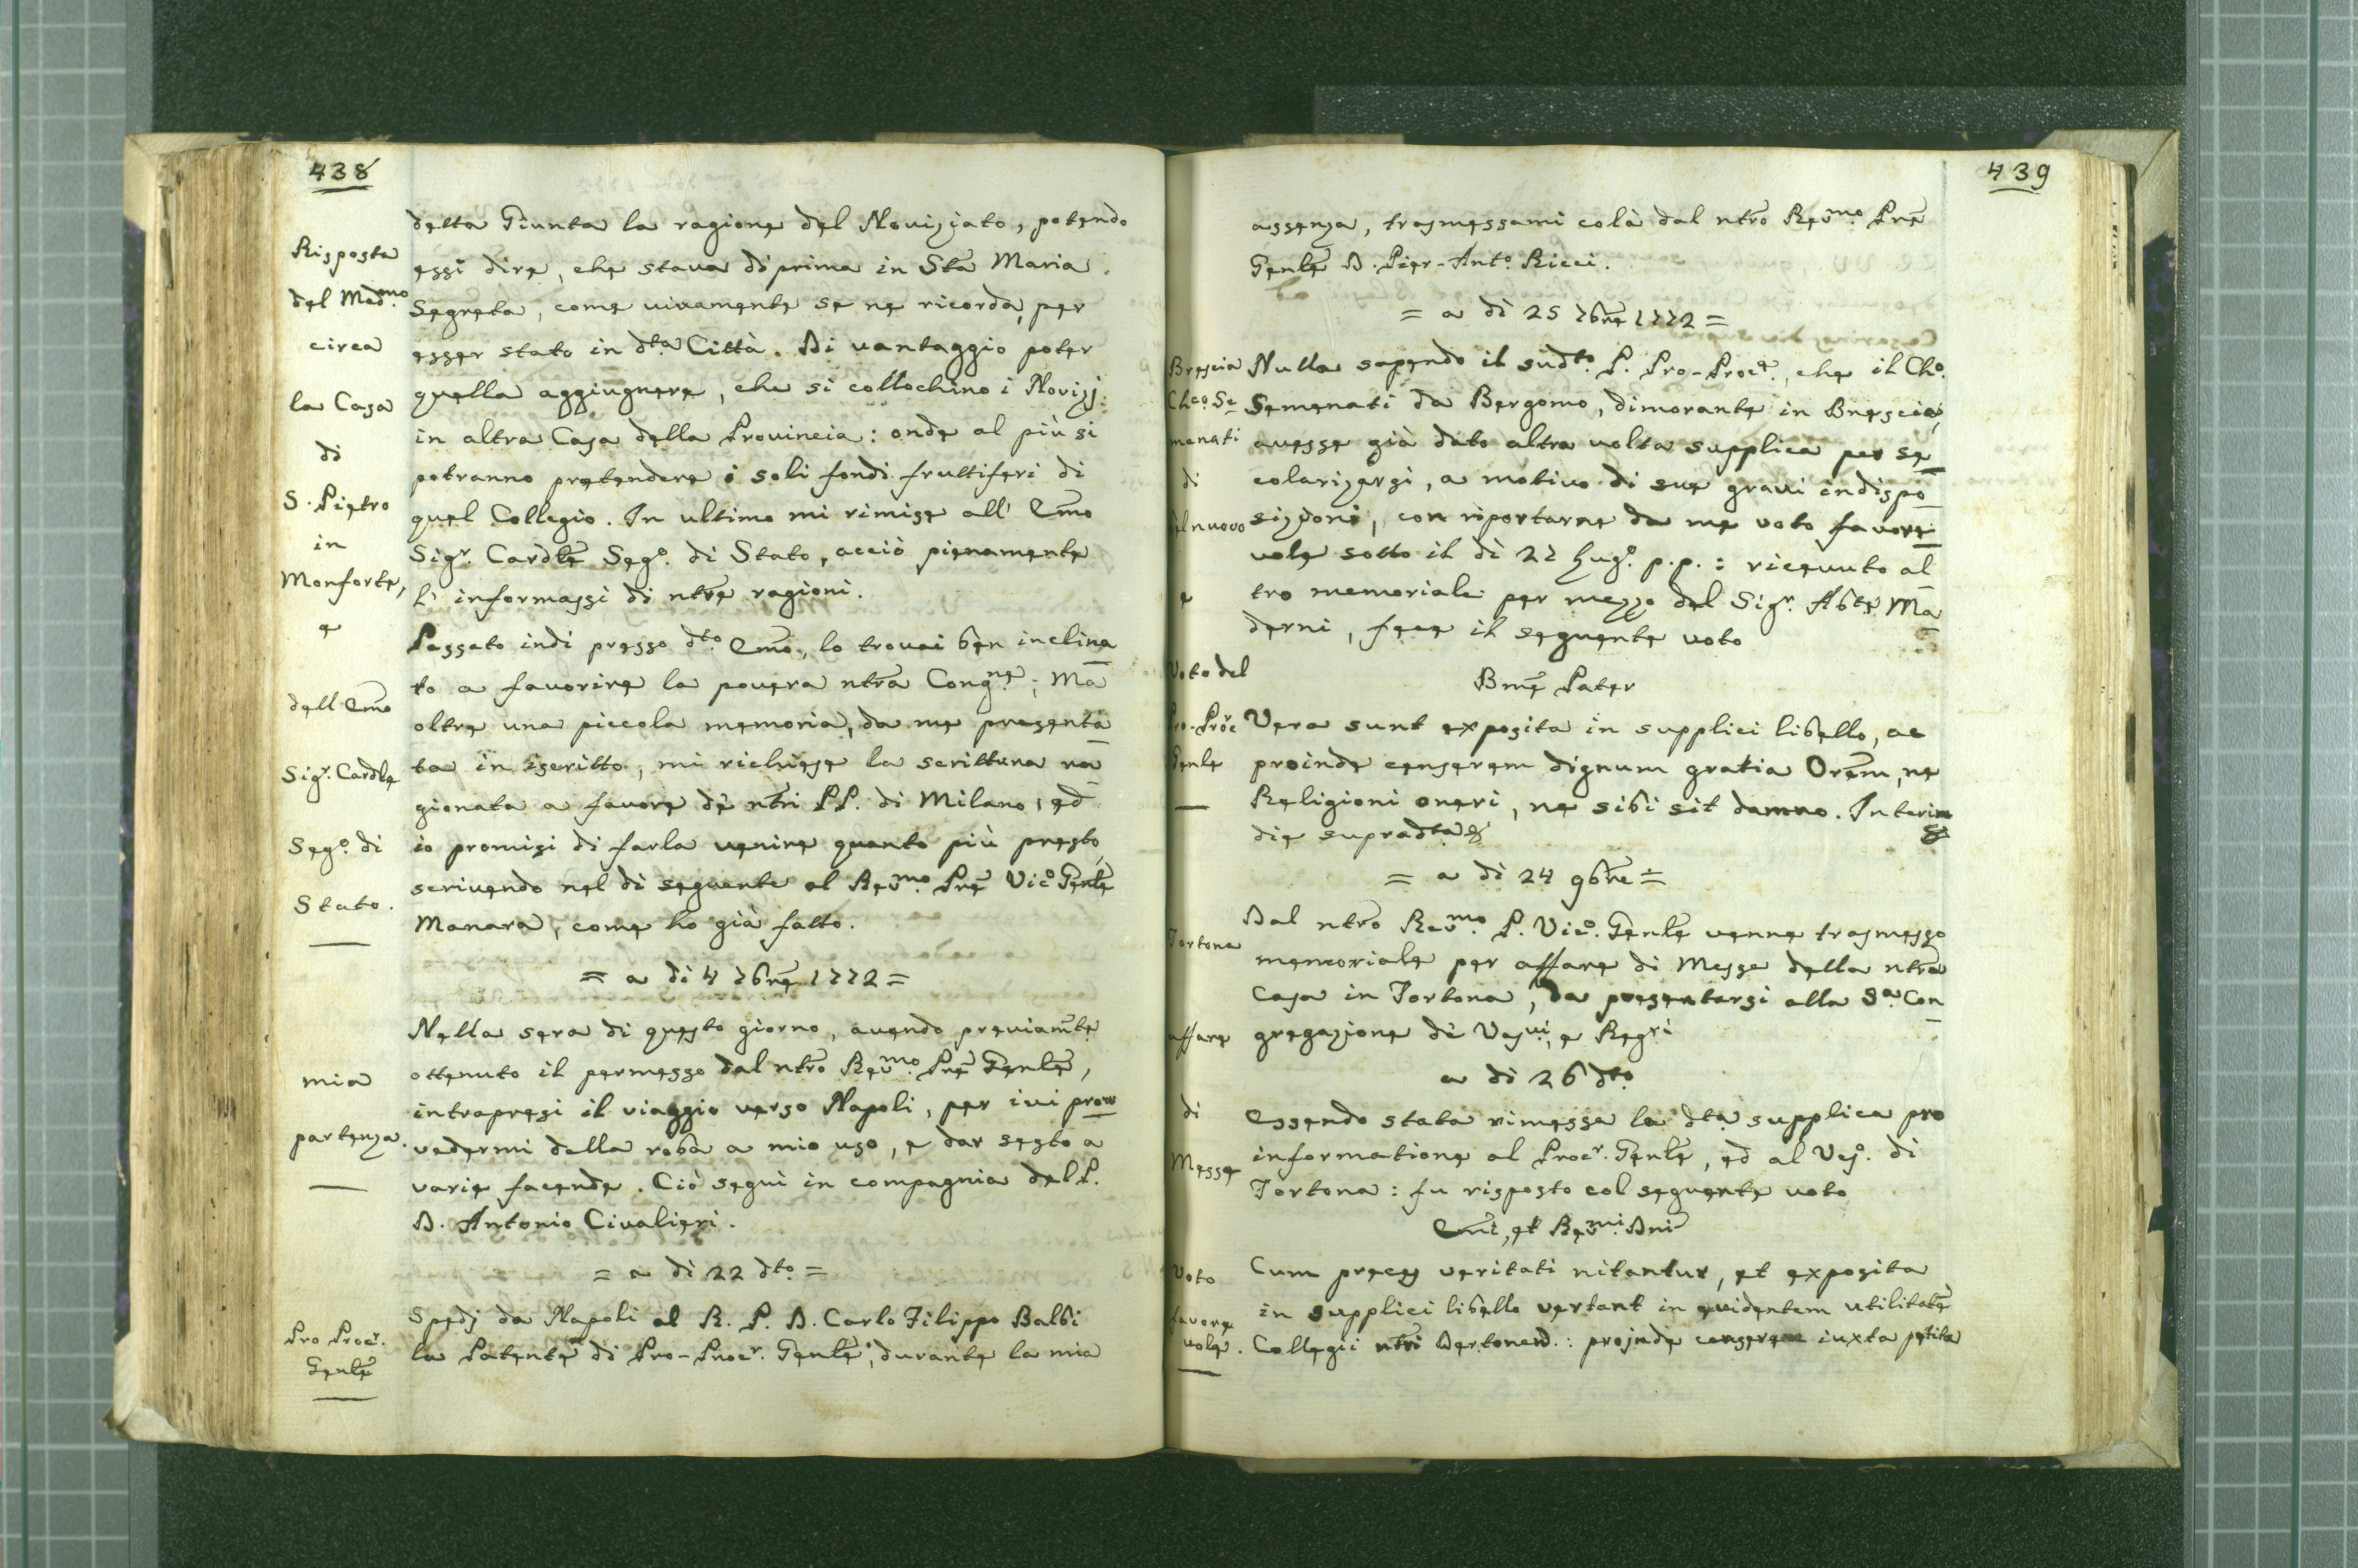 438
Risposta
del Med.mo
circa
la Casa
di
S. Pietro
in
Monforte,
e
dell' Emo
Sigr. Cardle
Sego. di
Stato.
detta Giunta la ragione del Novizziato, potendo
essi dire, che stava di prima in Sta Maria
Segreta, come vivamente se ne ricorda, per
esser stato in dta Città. Di vantaggio poter
quella aggiugnere, che si collochino i Novizj
in altra Casa della Provincia: onde al più si
potranno pretendere i soli fondi fruttiferi di
quel Collegio. In ultimo mi rimise all' Emo
Sigr. Cardle Sego. di Stato, acciò pienamente
l' informassi di ntre ragioni.
Passato indi presso dto. Emo, lo trovai ben inclina
to a favorire la povera ntra Congne.; Ma
oltre una piccola memoria, da me presenta
ta in iscritto, mi richiese la scrittura ra
gionata a favore de' ntri PP. di Milano, ed
io promisi di farla venire quanto più presto,
scrivendo nel dì seguente al Revmo. Pre Vico. Gente
Manara, come ho già fatto.
= a dì 4 7bre 1772 =
mia
partenza.
Nella sera di questo giorno, avendo previamte
ottenuto il permesso dal ntro Revmo. Pre Genle,
intrapresi il viaggio verso Napoli, per ivi prov
vedermi della roba a mio uso, e dar sesto a
varie facende. Ciò seguì in compagnia del P.
D. Antonio Civalieri.
= a dì 22 dto. =
Pro Procr.
Genle
Spedj da Napoli al R. P. D. Carlo Filippo Balbi
la Patente di Pro-Procr. Genle, durante la mia
439
assenza, trasmessami colà dal ntro Revmo. Pre
Genle D. Pier-Anto. Ricci.
= a dì 25 7bre 1772 =
Brescia
Chco. Se
menati
di
bel nuovo
e
Voto del
Pro-Procr
Genle
Nulla sapendo il sudto. P. Pro-Procr., che il Cho.
Semenati da Bergomo, dimorante in Brescia,
avesse già dato altra volta supplica per se
colarizarsi, a motivo di sue gravi indispo
sizioni, con riportarne da me voto favore
vole sotto il dì 22 Lugo. p.p.: ricevuto al
tro memoriale per mezzo del Sigr. Abte Ma
derni, fece il seguente voto
Bme Pater
Vera sunt exposita in supplici libello, ac
proinde censerem dignum gratia Orem, ne
Religioni oneri, ne sibi sit damno. Interim &
die supradta &
= a dì 24 9bre =
Tortona
affare
di
Messe
Dal ntro Revmo. P. Vico. Genle venne trasmesso
memoriale per affare di Messe della ntra
Casa in Tortona, da presentarsi alla Sa. Con
gregazione de' Vesvi, e Regri
a dì 26 dto.
Essendo stata rimessa la dta supplica pro
informatione al Procr. Genle, ed al Veso. di
Tortona: fu risposto col seguente voto
Emi, et Revmi. Dni
Voto
favore
vole.
Cum preces veritati nitantur, et exposita
in supplici libello vertant in evidentem utilitate
Collegii ntri Dertonen.: proinde censerem iuxta petita